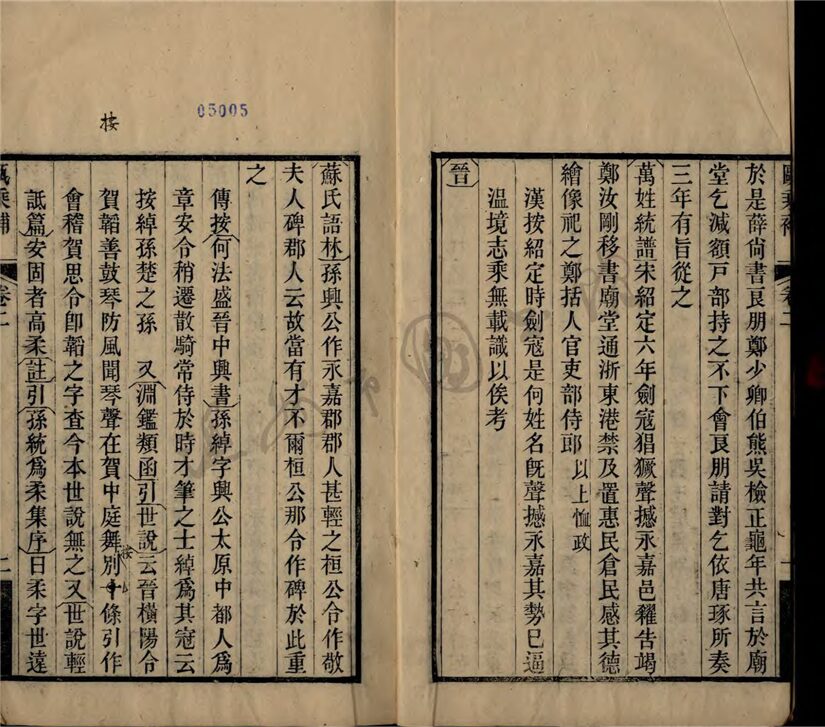 於是薛尚書良朋鄭少卿伯熊吳檢正龜年共言於廟
堂乞減額戸部持之不下會良朋請對乞依唐琢所奏
三年有旨從之
萬姓統譜宋紹定六年劍寇猖獗聲撼永嘉邑糴告竭
鄭汝剛移書廟堂通浙東港禁及置惠民倉民感其德
繪像祀之鄭括人官吏部侍郎 以上恤政
漢按紹定時劍寇是何姓名旣聲撼永嘉其勢已逼
溫境志乘無載識以俟考
晉
05005
按
蘇氏語林孫興公作永嘉郡郡人甚輕之桓公令作敬
夫人碑郡人云故當有才不爾桓公那令作碑於此重
之
傳按何法盛晉中興書孫綽字興公太原中都人爲
章安令稍遷散騎常侍於時才筆之士綽爲其冠云
按綽孫楚之孫 又淵鑑類函引世說云晉橫陽令
賀韜善鼓琴防風聞琴聲在賀中庭舞別十條引作
按
會稽賀思令卽韜之字查今本世說無之又世說輕
詆篇安固者高柔註引孫統爲柔集序曰柔字世遠
甌乘補 卷二 二